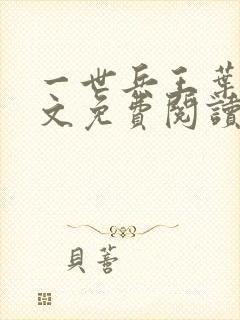 一世兵王葉
文免費閱讀
貝蒼